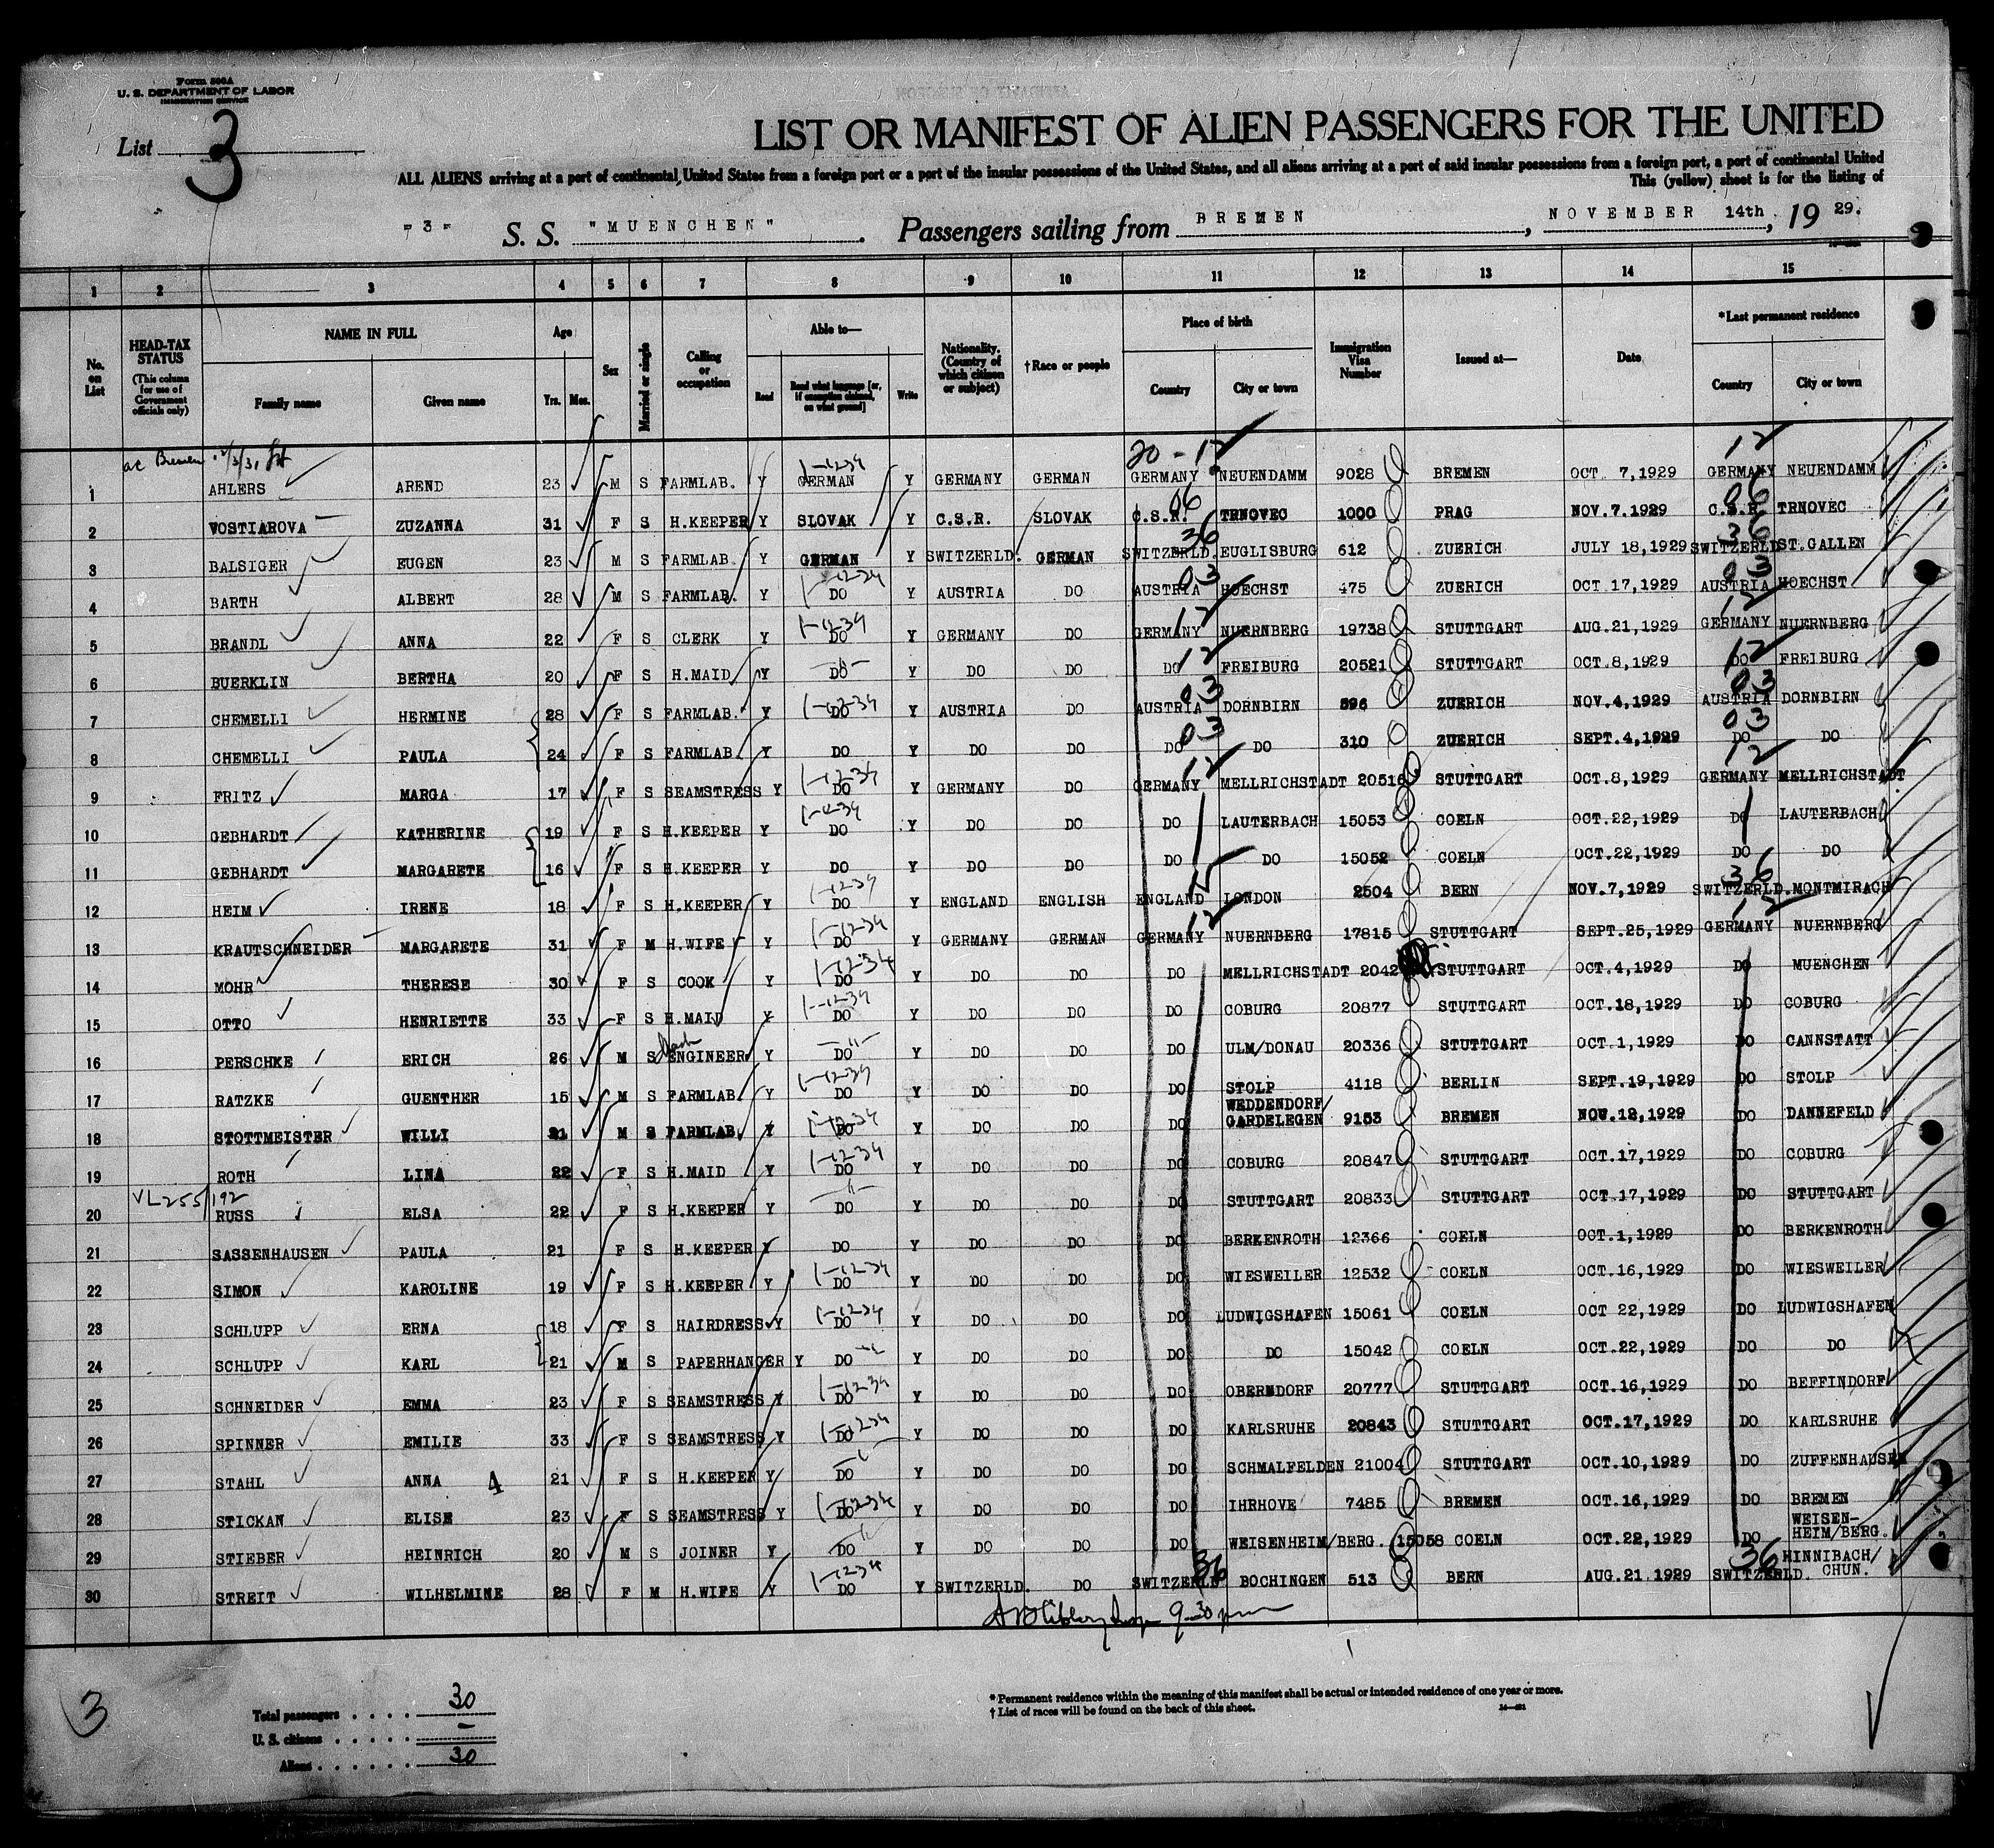 Form 500A
U. S. DEPARTMENT OF LABOR
IMMIGRATION SERVICE
List 3
LIST OR MANIFEST OF ALIEN PASSENGERS FOR THE UNITED
ALL ALIENS arriving at a port of continental United States from a foreign port or a port of the insular possessions of the United States, and all aliens arriving at a port of said insular possessions from a foreign port, a port of continental United
This (yellow) sheet is for the listing of
-3- S. S. "MUENCHEN" Passengers sailing from BREMEN, NOVEMBER 14th, 19 29.
1 2 3 4 5 6 7 8 9 10 11 12 13 14 15
No. on List
HEAD-TAX STATUS (This column for use of Government officials only)
NAME IN FULL
Family name Given name
Age
Yrs. Mos.
Sex
Married or single
Calling or occupation
Able to—
Read Read what language [or, if exemption claimed, on what ground] Write
Nationality. (Country of which citizen or subject)
†Race or people
Place of birth
Country City or town
Immigration Visa Number
Issued at—
Date
*Last permanent residence
Country City or town
20-12 12
1 AHLERS AREND 23 M S FARMLAB. Y GERMAN Y GERMANY GERMAN GERMANY NEUENDAMM 9028 BREMEN OCT 7,1929 GERMANY NEUENDAMM
2 VOSTIAROVA ZUZANNA 31 F S H.KEEPER Y SLOVAK Y C.S.R. SLOVAK C.S.R. TRNOVEC 1000 PRAG NOV.7.1929 C.S.R. TRNOVEC
3 BALSIGER EUGEN 23 M S FARMLAB. Y GERMAN Y SWITZERLD. GERMAN SWITZERLD. EUGLISBURG 612 ZUERICH JULY 18,1929 SWITZERLD ST.GALLEN
4 BARTH ALBERT 28 M S FARMLAB. Y DO Y AUSTRIA DO AUSTRIA HOECHST 475 ZUERICH OCT 17,1929 AUSTRIA HOECHST
5 BRANDL ANNA 22 F S CLERK Y DO Y GERMANY DO GERMANY NUERNBERG 19738 STUTTGART AUG.21,1929 GERMANY NUERNBERG
6 BUERKLIN BERTHA 20 F S H.MAID Y DO Y DO DO DO FREIBURG 20521 STUTTGART OCT.8,1929 DO FREIBURG
7 CHEMELLI HERMINE 28 F S FARMLAB. Y DO Y AUSTRIA DO AUSTRIA DORNBIRN 596 ZUERICH NOV.4,1929 AUSTRIA DORNBIRN
8 CHEMELLI PAULA 24 F S FARMLAB. Y DO Y DO DO DO DO 310 ZUERICH SEPT.4,1929 DO DO
9 FRITZ MARGA 17 F S SEAMSTRESS Y DO Y GERMANY DO GERMANY MELLRICHSTADT 20516 STUTTGART OCT.8,1929 GERMANY MELLRICHSTADT
10 GEBHARDT KATHERINE 19 F S H.KEEPER Y DO Y DO DO DO LAUTERBACH 15053 COELN OCT.22,1929 DO LAUTERBACH
11 GEBHARDT MARGARETE 16 F S H.KEEPER Y DO Y DO DO DO DO 15052 COELN OCT.22,1929 DO DO
12 HEIM IRENE 18 F S H.KEEPER Y DO Y ENGLAND ENGLISH ENGLAND LONDON 2504 BERN NOV.7,1929 SWITZERLD. MONTMIRACH
13 KRAUTSCHNEIDER MARGARETE 31 F M H.WIFE Y DO Y GERMANY GERMAN GERMANY NUERNBERG 17815 STUTTGART SEPT.25,1929 GERMANY NUERNBERG
14 MOHR THERESE 30 F S COOK Y DO Y DO DO DO MELLRICHSTADT 2042 STUTTGART OCT.4,1929 DO MUENCHEN
15 OTTO HENRIETTE 33 F S H.MAID Y DO Y DO DO DO COBURG 20877 STUTTGART OCT.18,1929 DO COBURG
16 PERSCHKE ERICH 26 M S ENGINEER Y DO Y DO DO DO ULM/DONAU 20336 STUTTGART OCT.1,1929 DO CANNSTATT
17 RATZKE GUENTHER 15 M S FARMLAB. Y DO Y DO DO DO STOLP 4118 BERLIN SEPT.19,1929 DO STOLP
18 STOTTMEISTER WILLY 21 M S FARMLAB. Y DO Y DO DO DO WEDDENDORF/GARDELEGEN 9153 BREMEN NOV.12,1929 DO DANNEFELD
19 ROTH LINA 22 F S H.MAID Y DO Y DO DO DO COBURG 20847 STUTTGART OCT.17,1929 DO COBURG
VL255/192
20 RUSS ELSA 22 F S H.KEEPER Y DO Y DO DO DO STUTTGART 20833 STUTTGART OCT.17,1929 DO STUTTGART
21 SASSENHAUSEN PAULA 21 F S H.KEEPER Y DO Y DO DO DO BERKENROTH 12366 COELN OCT.1,1929 DO BERKENROTH
22 SIMON KAROLINE 19 F S H.KEEPER Y DO Y DO DO DO WIESWEILER 12532 COELN OCT.16,1929 DO WIESWEILER
23 SCHLUPP ERNA 18 F S HAIRDRESS. Y DO Y DO DO DO LUDWIGSHAFEN 15061 COELN OCT 22,1929 DO LUDWIGSHAFEN
24 SCHLUPP KARL 21 M S PAPERHANGER Y DO Y DO DO DO DO 15042 COELN OCT.22,1929 DO DO
25 SCHNEIDER EMMA 23 F S SEAMSTRESS Y DO Y DO DO DO OBERNDORF 20777 STUTTGART OCT.16,1929 DO BEFFINDORF
26 SPINNER EMILIE 33 F S SEAMSTRESS Y DO Y DO DO DO KARLSRUHE 20843 STUTTGART OCT.17,1929 DO KARLSRUHE
27 STAHL ANNA 4 21 F S H.KEEPER Y DO Y DO DO DO SCHMALFELDEN 21004 STUTTGART OCT.10,1929 DO ZUFFENHAUSEN
28 STICKAN ELISE 23 F S SEAMSTRESS Y DO Y DO DO DO IHRHOVE 7485 BREMEN OCT.16,1929 DO BREMEN
29 STIEBER HEINRICH 20 M S JOINER Y DO Y DO DO DO WEISENHEIM/BERG. 15058 COELN OCT.22,1929 DO WEISEN-HEIM/BERG.
30 STREIT WILHELMINE 28 F M H.WIFE Y DO Y SWITZERLD. DO SWITZERLD BOCHINGEN 513 BERN AUG.21 1929 SWITZERLD. HINNIBACH/CHUN.
9-30 pm
3
Total passengers 30
U. S. citizens –
Aliens 30
*Permanent residence within the meaning of this manifest shall be actual or intended residence of one year or more.
†List of races will be found on the back of this sheet.